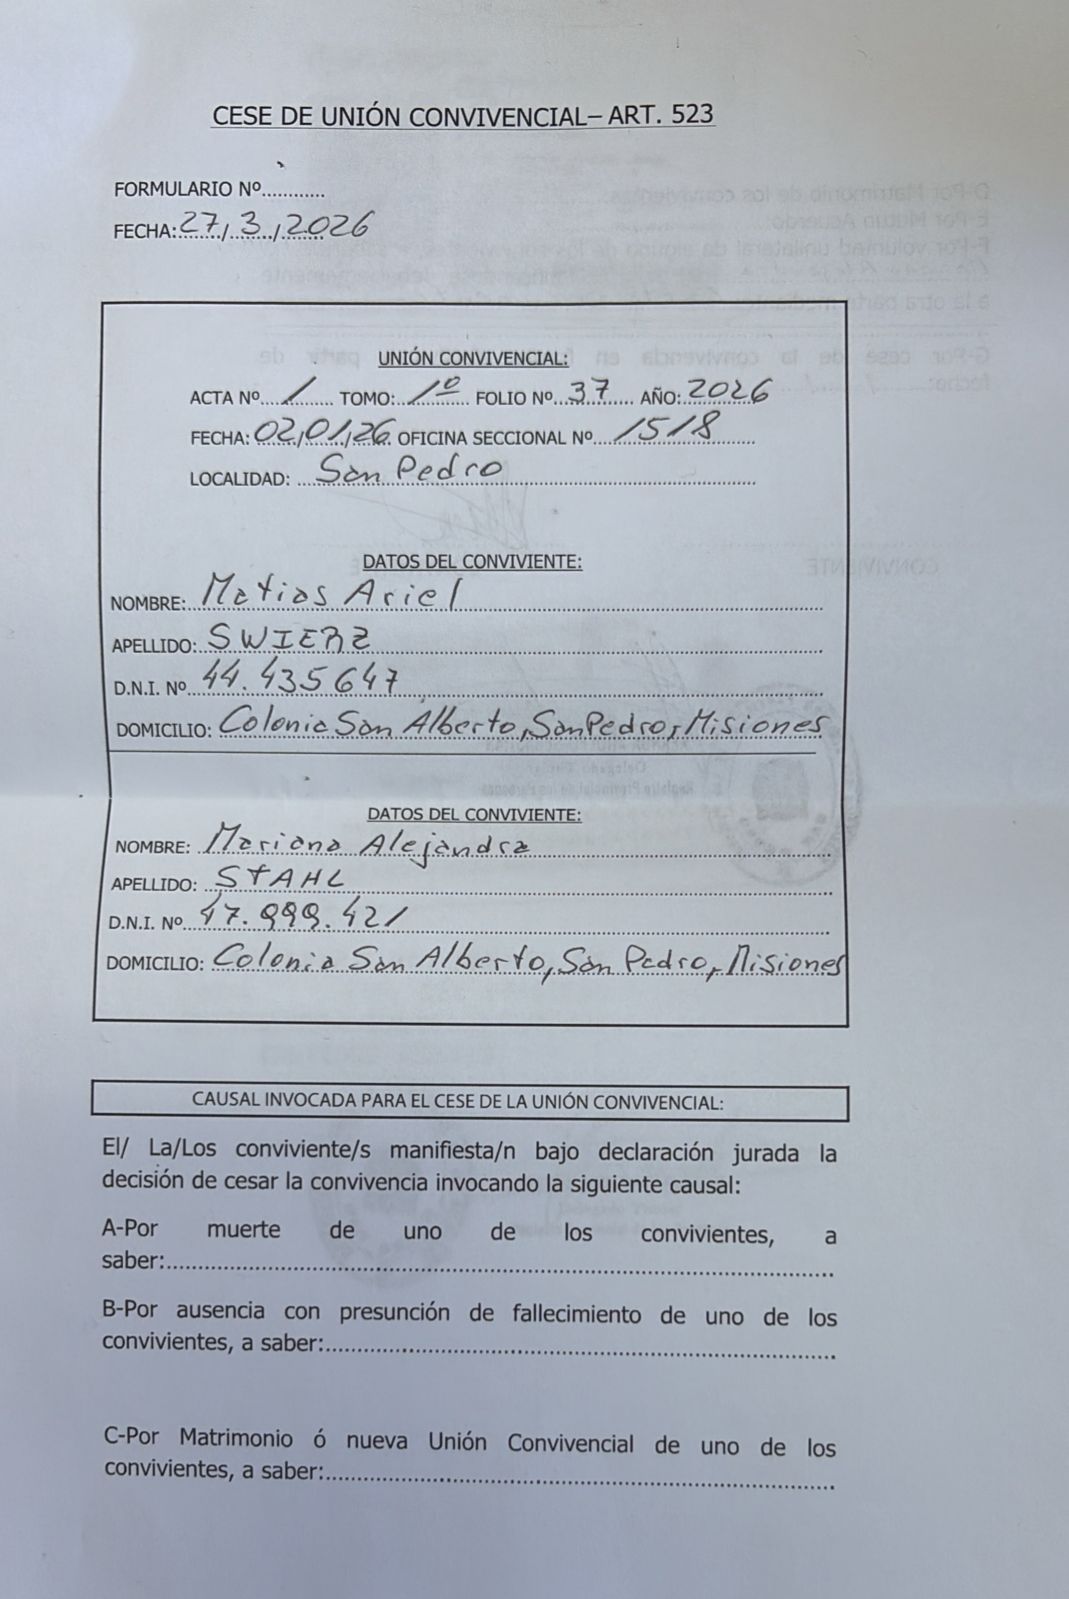 CESE DE UNIÓN CONVIVENCIAL– ART. 523
FORMULARIO Nº............
FECHA: 27/3/2026
UNIÓN CONVIVENCIAL:
ACTA Nº 1 TOMO: 1º FOLIO Nº 37 AÑO: 2026
FECHA: 02/01/26 OFICINA SECCIONAL Nº 1518
LOCALIDAD: San Pedro
DATOS DEL CONVIVIENTE:
NOMBRE: Matias Ariel
APELLIDO: SWIERZ
D.N.I. Nº 44.435647
DOMICILIO: Colonia San Alberto, San Pedro, Misiones
DATOS DEL CONVIVIENTE:
NOMBRE: Mariana Alejandra
APELLIDO: STAHL
D.N.I. Nº 47.999.421
DOMICILIO: Colonia San Alberto, San Pedro, Misiones
CAUSAL INVOCADA PARA EL CESE DE LA UNIÓN CONVIVENCIAL:
El/ La/Los conviviente/s manifiesta/n bajo declaración jurada la
decisión de cesar la convivencia invocando la siguiente causal:
A-Por muerte de uno de los convivientes, a
saber:
B-Por ausencia con presunción de fallecimiento de uno de los
convivientes, a saber:
C-Por Matrimonio ó nueva Unión Convivencial de uno de los
convivientes, a saber: